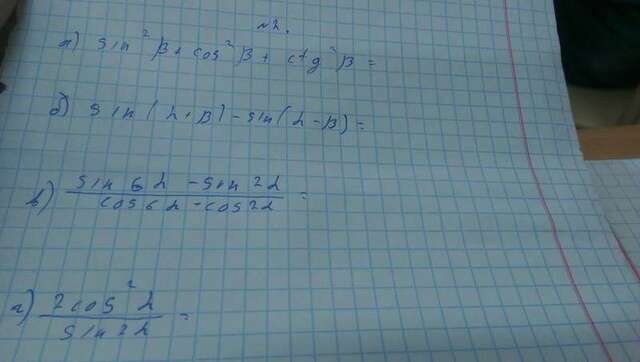 №2.
а) sin²β + cos²β + ctg²β =
б) sin(α+β) - sin(α-β) =
в) sin6α - sin2α / cos6α - cos2α =
г) 2cos²α / sin2α =